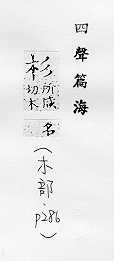 四聲篇海
所咸
切木
名
(木部·p286)